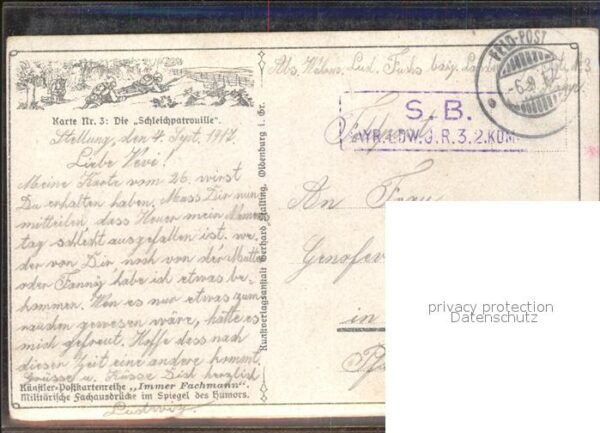 Karte Nr. 3: Die „Schleichpatrouille".
Stellung, den 4. Sept. 1917.
Liebe Veve!
Meine Karte vom 26. wirst
Du erhalten haben. Muss Dir nun
mitteilen dass Heuer mein Namens
tag schlecht ausgefallen ist. we-
der von Dir noch von der Mutter
oder Fanny habe ich etwas be-
kommen. Wen es nur etwas zum
rauchen gewesen wäre, hätte es
mich gefreut. Hoffe dass nach
dieser Zeit eine andere kommt.
Grüsse u. Küsse Dich herzlich
Ludwig
Künstler-Postkartenreihe „Immer Fachmann".
Militärische Fachausdrücke im Spiegel des Humors.
Kunstverlagsanstalt Gerhard Stalling, Oldenburg i. Gr.
Abs. Wehrm. Lud. Fuchs bayr.
FELD-POST
-6.9.
Feldpost
S. B.
AYR. LDW. J. R. 3. 2. KOM
An Frau
Genofev
in
privacy protection
Datenschutz